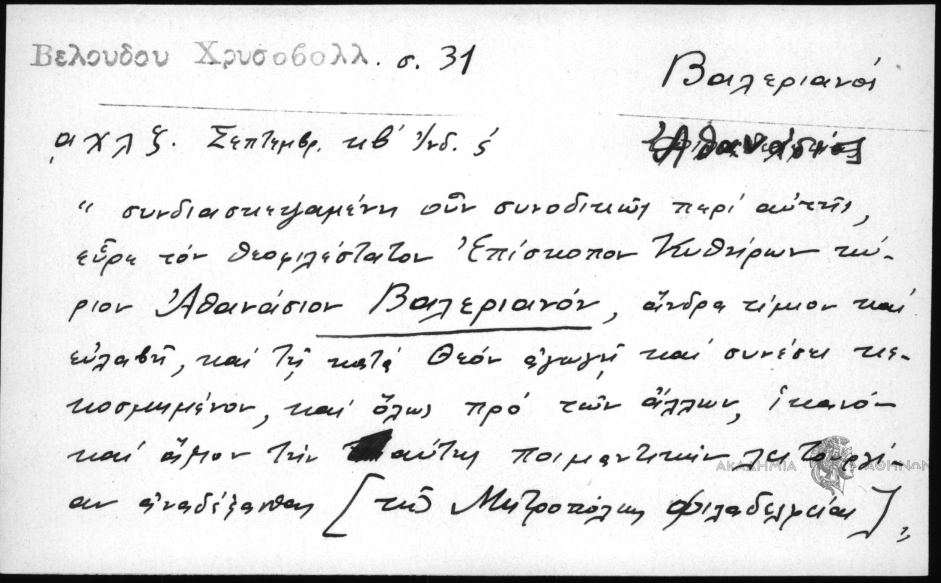 Βελουδου Χρυσοβολλ. σ. 31
Βαλεριανοί
αχλζ. Σεπτεμβρ. κβ' Ἰνδ. ς́
Ἀθανάσιος
“ συνδιασκεψαμένη οὖν συνοδικῶς περί αὐτῆς,
εὗρε τόν θεοφιλέστατον Ἐπίσκοπον Κυθήρων κύ-
ριον Ἀθανάσιον Βαλεριανόν, ἄνδρα τίμιον καί
εὐλαβῆ, καί τῇ κατά Θεόν ἀγωγῇ καί συνέσει κε-
κοσμημένον, καί ὅλως πρό τῶν ἄλλων, ἱκανόν
καί ἄξιον τήν αὐτῆς ποιμαντικήν λειτουργί-
αν ἀναδέξασθαι [τῆς Μητροπόλεως Φιλαδελφείας] „
ΑΚΑΔΗΜΙΑ ΑΘΗΝΩΝ